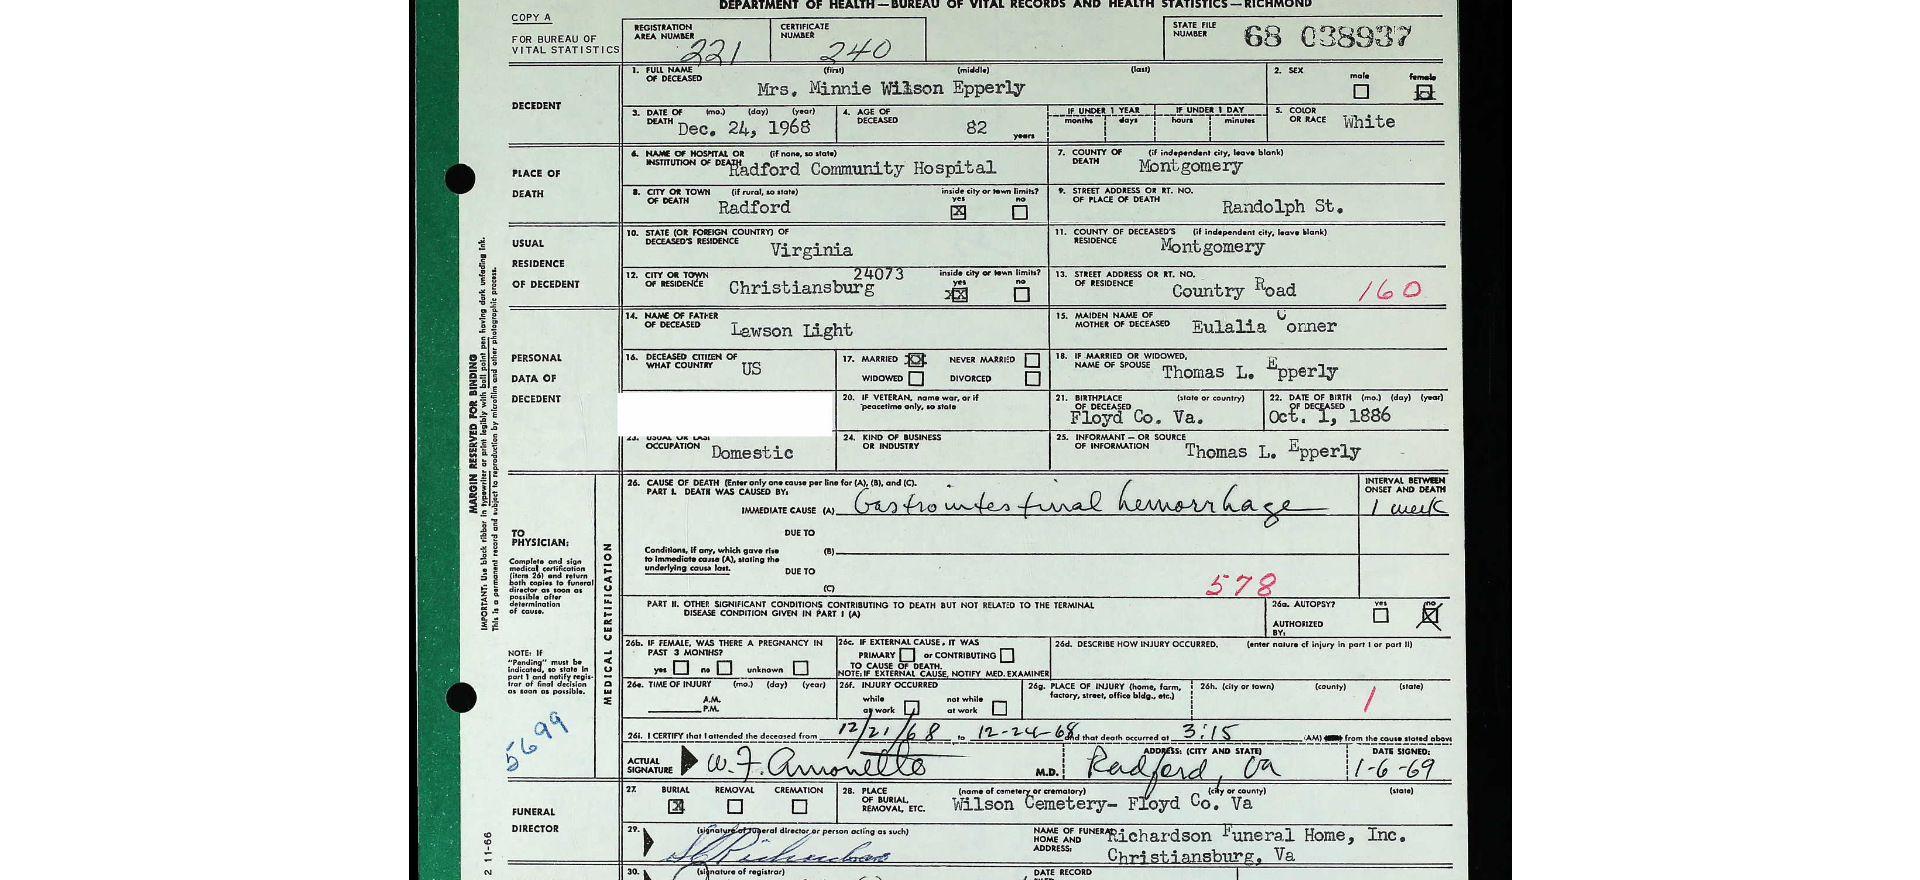 DEPARTMENT OF HEALTH—BUREAU OF VITAL RECORDS AND HEALTH STATISTICS—RICHMOND
COPY A
FOR BUREAU OF
VITAL STATISTICS
REGISTRATION
AREA NUMBER 221
CERTIFICATE
NUMBER 240
STATE FILE
NUMBER 68 038937
DECEDENT
1. FULL NAME (first) (middle) (last)
OF DECEASED Mrs. Minnie Wilson Epperly
2. SEX male female
3. DATE OF (mo.) (day) (year)
DEATH Dec. 24, 1968
4. AGE OF
DECEASED 82 years
IF UNDER 1 YEAR
months days
IF UNDER 1 DAY
hours minutes
5. COLOR
OR RACE White
PLACE OF
DEATH
6. NAME OF HOSPITAL OR (if none, so state)
INSTITUTION OF DEATH Radford Community Hospital
7. COUNTY OF (if independent city, leave blank)
DEATH Montgomery
8. CITY OR TOWN (if rural, so state)
OF DEATH Radford
inside city or town limits?
yes no
X
9. STREET ADDRESS OR RT. NO.
OF PLACE OF DEATH Randolph St.
USUAL
RESIDENCE
OF DECEDENT
10. STATE (OR FOREIGN COUNTRY) OF
DECEASED'S RESIDENCE Virginia
11. COUNTY OF DECEASED'S (if independent city, leave blank)
RESIDENCE Montgomery
12. CITY OR TOWN 24073
OF RESIDENCE Christiansburg
inside city or town limits?
yes no
XX
13. STREET ADDRESS OR RT. NO.
OF RESIDENCE Country Road 160
PERSONAL
DATA OF
DECEDENT
14. NAME OF FATHER
OF DECEASED Lawson Light
15. MAIDEN NAME OF
MOTHER OF DECEASED Eulalia Conner
16. DECEASED CITIZEN OF
WHAT COUNTRY US
17. MARRIED NEVER MARRIED
WIDOWED DIVORCED
18. IF MARRIED OR WIDOWED,
NAME OF SPOUSE Thomas L. Epperly
20. IF VETERAN, name war, or if
peacetime only, so state
21. BIRTHPLACE (state or country)
OF DECEASED
Floyd Co. Va.
22. DATE OF BIRTH (mo.) (day) (year)
OF DECEASED
Oct. 1, 1886
23. USUAL OR LAST
OCCUPATION Domestic
24. KIND OF BUSINESS
OR INDUSTRY
25. INFORMANT — OR SOURCE
OF INFORMATION Thomas L. Epperly
MARGIN RESERVED FOR BINDING
IMPORTANT: Use black ribbon in typewriter or print legibly with ball point pen having dark unfading ink.
This is a permanent record and subject to reproduction by microfilm and other photographic process.
TO
PHYSICIAN:
Complete and sign
medical certification
(item 26) and return
both copies to funeral
director as soon as
possible after
determination
of cause.
NOTE: If
"Pending" must be
indicated, so state in
part 1 and notify regis-
trar of final decision
as soon as possible.
5699
MEDICAL CERTIFICATION
26. CAUSE OF DEATH (Enter only one cause per line for (A), (B), and (C).
PART I. DEATH WAS CAUSED BY:
INTERVAL BETWEEN
ONSET AND DEATH
IMMEDIATE CAUSE (A) Gastrointestinal hemorrhage 1 week
DUE TO
Conditions, if any, which gave rise
to immediate cause (A), stating the
underlying cause last.
(B)
DUE TO
(C)
578
PART II. OTHER SIGNIFICANT CONDITIONS CONTRIBUTING TO DEATH BUT NOT RELATED TO THE TERMINAL
DISEASE CONDITION GIVEN IN PART I (A)
26a. AUTOPSY? yes no
AUTHORIZED
BY:
26b. IF FEMALE, WAS THERE A PREGNANCY IN
PAST 3 MONTHS?
yes no unknown
26c. IF EXTERNAL CAUSE, IT WAS
PRIMARY or CONTRIBUTING
TO CAUSE OF DEATH.
NOTE: IF EXTERNAL CAUSE, NOTIFY MED. EXAMINER
26d. DESCRIBE HOW INJURY OCCURRED. (enter nature of injury in part I or part II)
26e. TIME OF INJURY (mo.) (day) (year)
A.M.
P.M.
26f. INJURY OCCURRED
while not while
at work at work
26g. PLACE OF INJURY (home, farm,
factory, street, office bldg., etc.)
26h. (city or town) (county) (state)
1
26i. I CERTIFY that I attended the deceased from 12/21/68 to 12-24-68 and that death occurred at 3:15 (AM) from the cause stated above
ACTUAL
SIGNATURE W. F. Amonette M.D.
ADDRESS: (CITY AND STATE)
Radford, Va
DATE SIGNED:
1-6-69
FUNERAL
DIRECTOR
27. BURIAL REMOVAL CREMATION
X
28. PLACE (name of cemetery or crematory) (city or county) (state)
OF BURIAL,
REMOVAL, ETC. Wilson Cemetery- Floyd Co. Va
29. (signature of funeral director or person acting as such)
NAME OF FUNERAL
HOME AND
ADDRESS:
Richardson Funeral Home, Inc.
Christiansburg, Va
30. (signature of registrar)
DATE RECORD
2 11-66